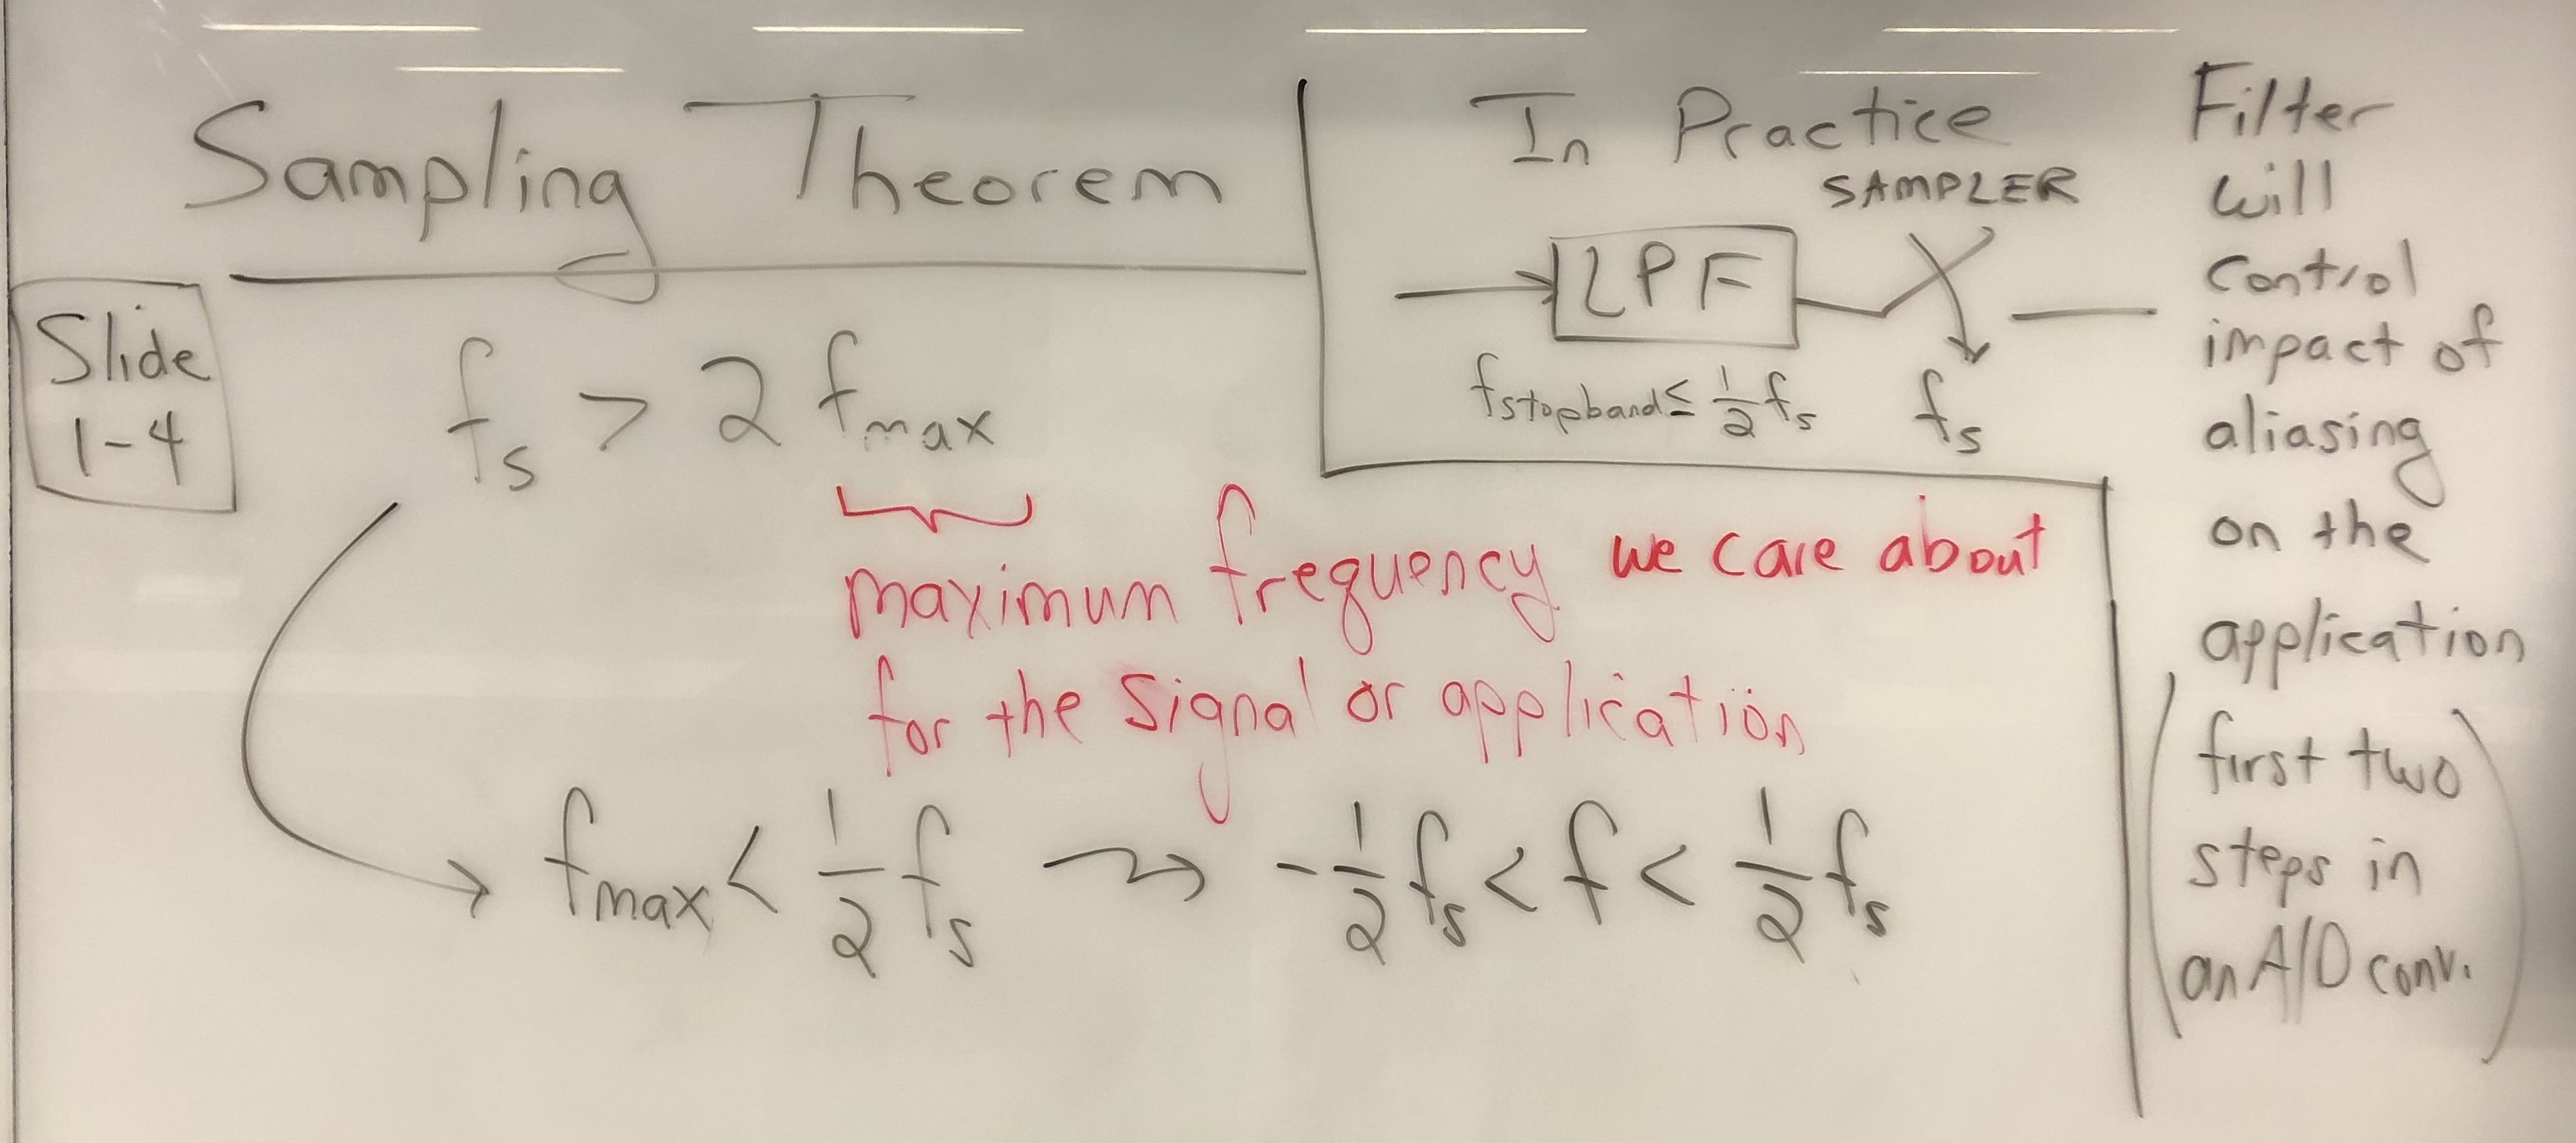 Sampling Theorem
Slide
1-4
fs > 2 fmax
maximum frequency we care about
for the signal or application
fmax < 1/2 fs → -1/2 fs < f < 1/2 fs
In Practice
SAMPLER
LPF
fstopband ≤ 1/2 fs
fs
Filter
will
control
impact of
aliasing
on the
application
(first two
steps in
an A/D conv.)